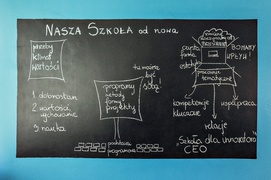 NASZA SZKOŁA od nowa
potrzeby
klimat
wartości
1. dobrostan
2. wartości
wychowanie
3. nauka
tu można
być
sobą!
programy
metody
formy
projekty
podstawa
programowa
BONAWY
WPŁYW!
pracownie
tematyczne
kompetencje
kluczowe
współpraca
relacje
„Szkoła dla innowatora"
CEO